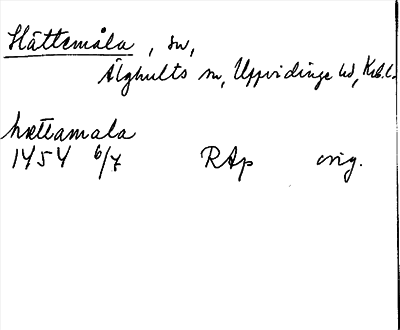 Hättemåla, sn,
Älghults sn, Uppvidinge hd, Krb.l.
hættamala
1454 6/7 RAp orig.